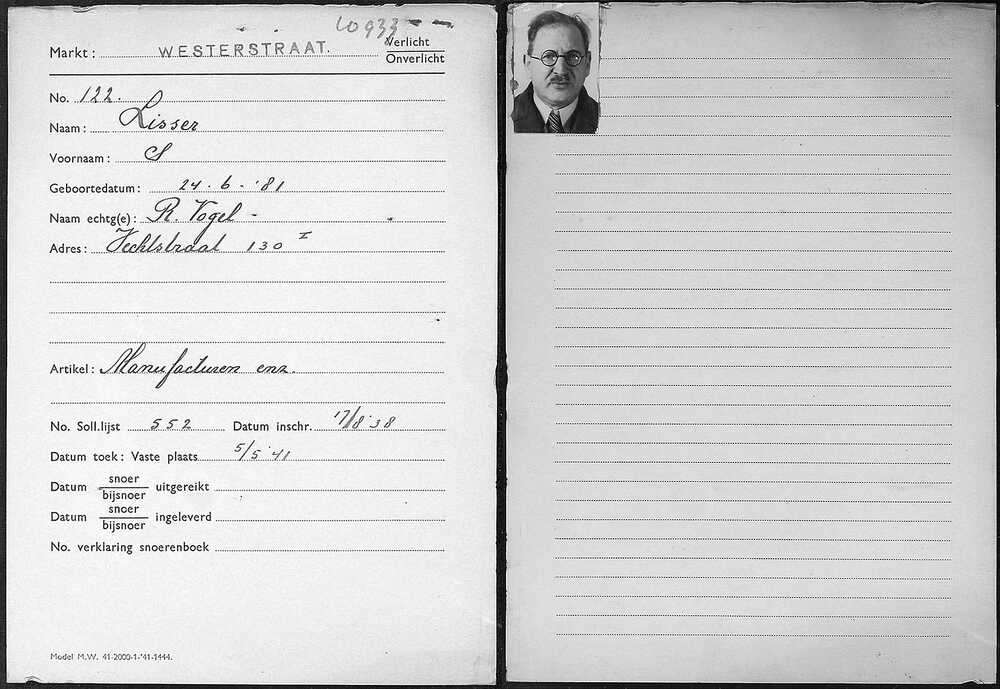 10933
Markt: WESTERSTRAAT. Verlicht
Onverlicht
No. 122.
Naam: Lisser
Voornaam: S
Geboortedatum: 24.6-'81
Naam echtg(e): R. Vogel -
Adres: Vechtstraat 130 I
Artikel: Manufacturen enz.
No. Soll.lijst 552 Datum inschr. 17/8'38
Datum toek: Vaste plaats 5/5'41
Datum snoer
bijsnoer uitgereikt
Datum snoer
bijsnoer ingeleverd
No. verklaring snoerenboek
Model M.W. 41-2000-1-'41-1444.